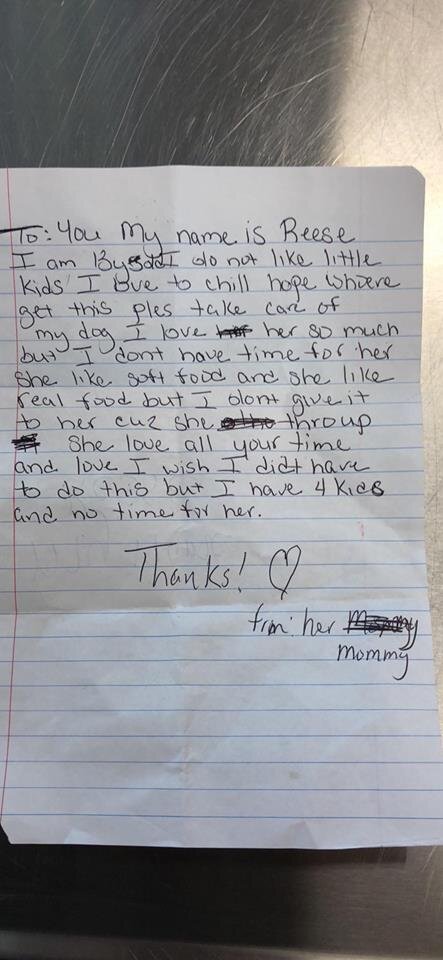 To: You My name is Reese
I am 13ysold I do not like little
Kids I love to chill hope whoere
get this ples take care of
my dog I love her so much
but I dont have time for her
She like soft food and she like
real food but I dont give it
to her cuz she throup
She love all your time
and love I wish I didt have
to do this but I have 4 kids
and no time for her.
Thanks! ♡
frm: her
mommy